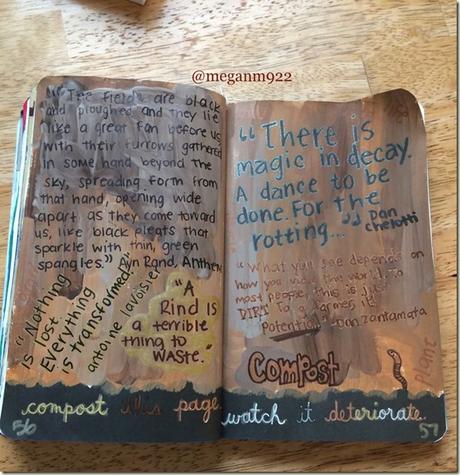 @meganm922
"The fields are black
and ploughed, and they lie
like a great fan before us,
with their furrows gathered
in some hand beyond the
sky, spreading forth from
that hand, opening wide
apart as they come toward
us, like black pleats that
sparkle with thin, green
spangles." Ayn Rand, Anthem
"Nothing
is lost.
Everything
is transformed."
antoine lavoisier
"A
Rind is
a terrible
thing to
WASTE."
compost this page.
56
"There is
magic in decay.
A dance to be
done. For the
rotting..." Dan
Chelotti
"What you see depends on
how you view the world. To
most people, this is just
DIRT. To a farmer, it's
Potential." -Doe Zantamata
COMPOST
plant
watch it deteriorate.
57